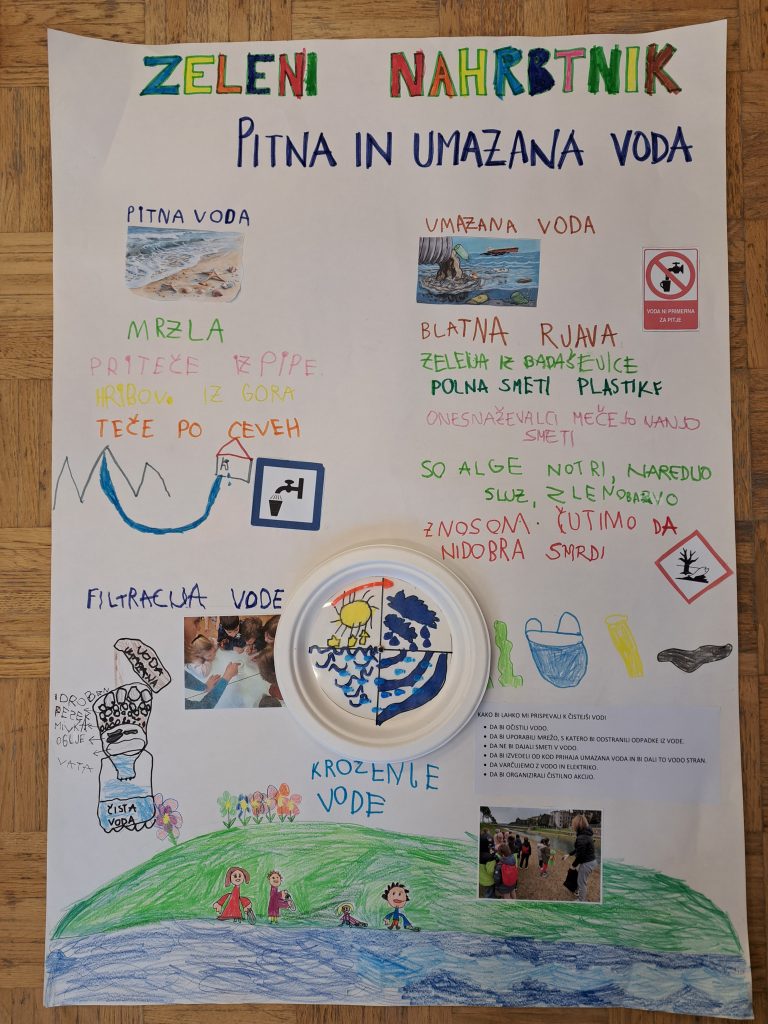 ZELENI NAHRBTNIK
PITNA IN UMAZANA VODA
PITNA VODA
MRZLA
PRITEČE IZ PIPE
HRIBOV. IZ GORA
TEČE PO CEVEH
UMAZANA VODA
VODA NI PRIMERNA
ZA PITJE
BLATNA RJAVA
ZELENA IZ BADAŠEVICE
POLNA SMETI PLASTIKE
ONESNAŽEVALCI MEČEJO VANJO
SMETI
SO ALGE NOTRI, NAREDIJO
SLUZ, ZLENO BARVO
Z NOSOM ČUTIMO DA
NI DOBRA SMRDI
FILTRACIJA VODE
VODA
UMAZANA
DROBEN
PEZEK
MIVKA
OGLJE
VATA
ČISTA
VODA
KROŽENJE
VODE
KAKO BI LAHKO MI PRISPEVALI K ČISTEJŠI VODI
• DA BI OČISTILI VODO.
• DA BI UPORABILI MREŽO, S KATERO BI ODSTRANILI ODPADKE IZ VODE.
• DA NE BI DAJALI SMETI V VODO.
• DA BI IZVEDELI OD KOD PRIHAJA UMAZANA VODA IN BI DALI TO VODO STRAN.
• DA VARČUJEMO Z VODO IN ELEKTRIKO.
• DA BI ORGANIZIRALI ČISTILNO AKCIJO.